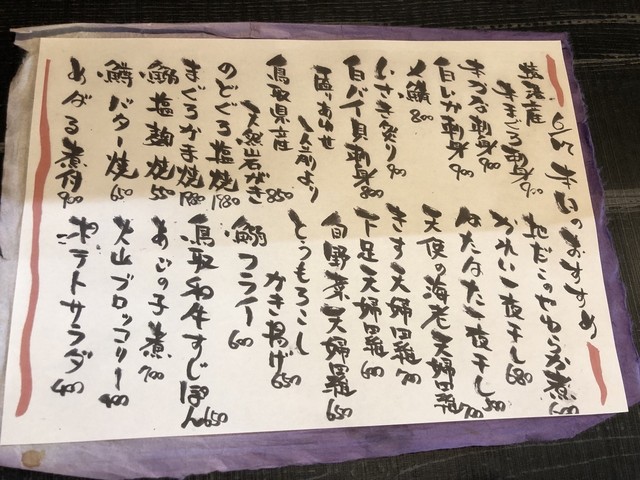 6/25 本日のおすすめ
境港産
生まぐろ刺身 900
本つな刺身 900
白いか刺身 900
〆鯖 800
いさき炙り 900
白バイ貝刺身 800
盛り合わせ
一人前より
鳥取県産
天然岩がき 850
のどぐろ塩焼 1980
まぐろかま焼 1780
塩麹焼 550
バター焼 650
めばる煮付 900
地だこのやわらか煮 600
かれい一夜干し 680
はたはた一夜干し 500
天使の海老天婦羅 700
きす天婦羅 700
下足天婦羅 600
旬野菜天婦羅 650
とうもろこし
かき揚げ 650
フライ 600
鳥取和牛すじぽん 650
あじの子煮 700
大山ブロッコリー 400
ポテトサラダ 400